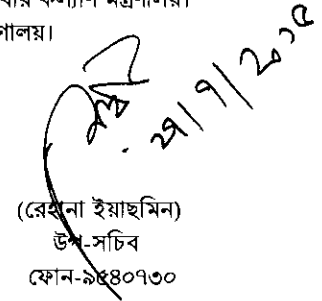 কল্যাণ মন্ত্রণালয়।
ণালয়।
(রেহানা ইয়াছমিন)
উপ-সচিব
ফোন-৯৫৪০৭৩০